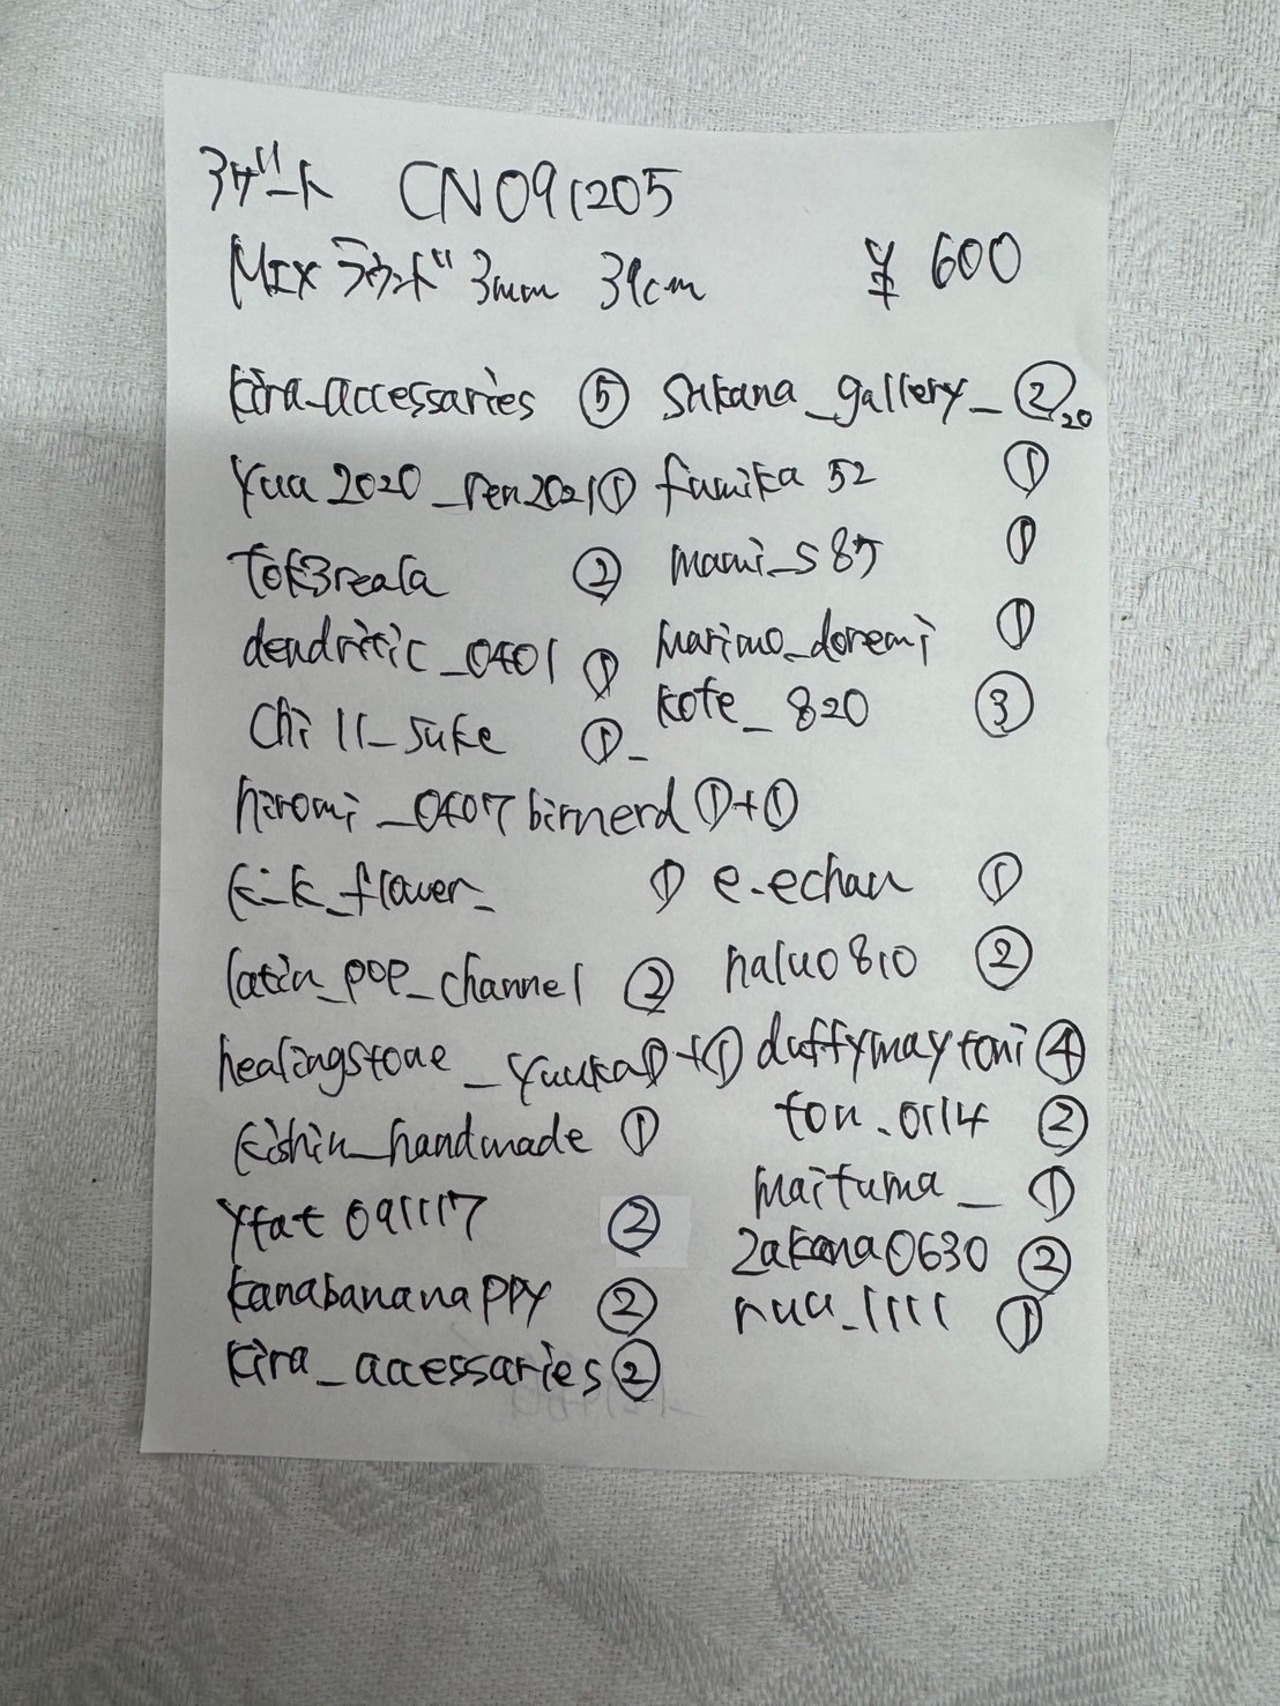 アゲート CN091205
MIXラウンド 3mm 39cm ¥600
kira_accessaries ⑤ sakana_gallery_ ② 20
yua2020_ren2021 ① fumika52 ①
tok3reala ② mami_s87 ①
dendritic_0401 ① marimo_doremi ①
chill_suke ①_ kote_820 ③
hiromi_0407birnerd ①+①
k_k_flower_ ① e.echan ①
latin_pop_channel ② halu0810 ②
healingstone_yuuka ①+① duffymaytoni ④
kishin_handmade ① ton.0114 ②
yfat091117 ② maituma_ ①
kanabananappy ② zakana0630 ②
kira_accessaries ② nuu_1111 ①